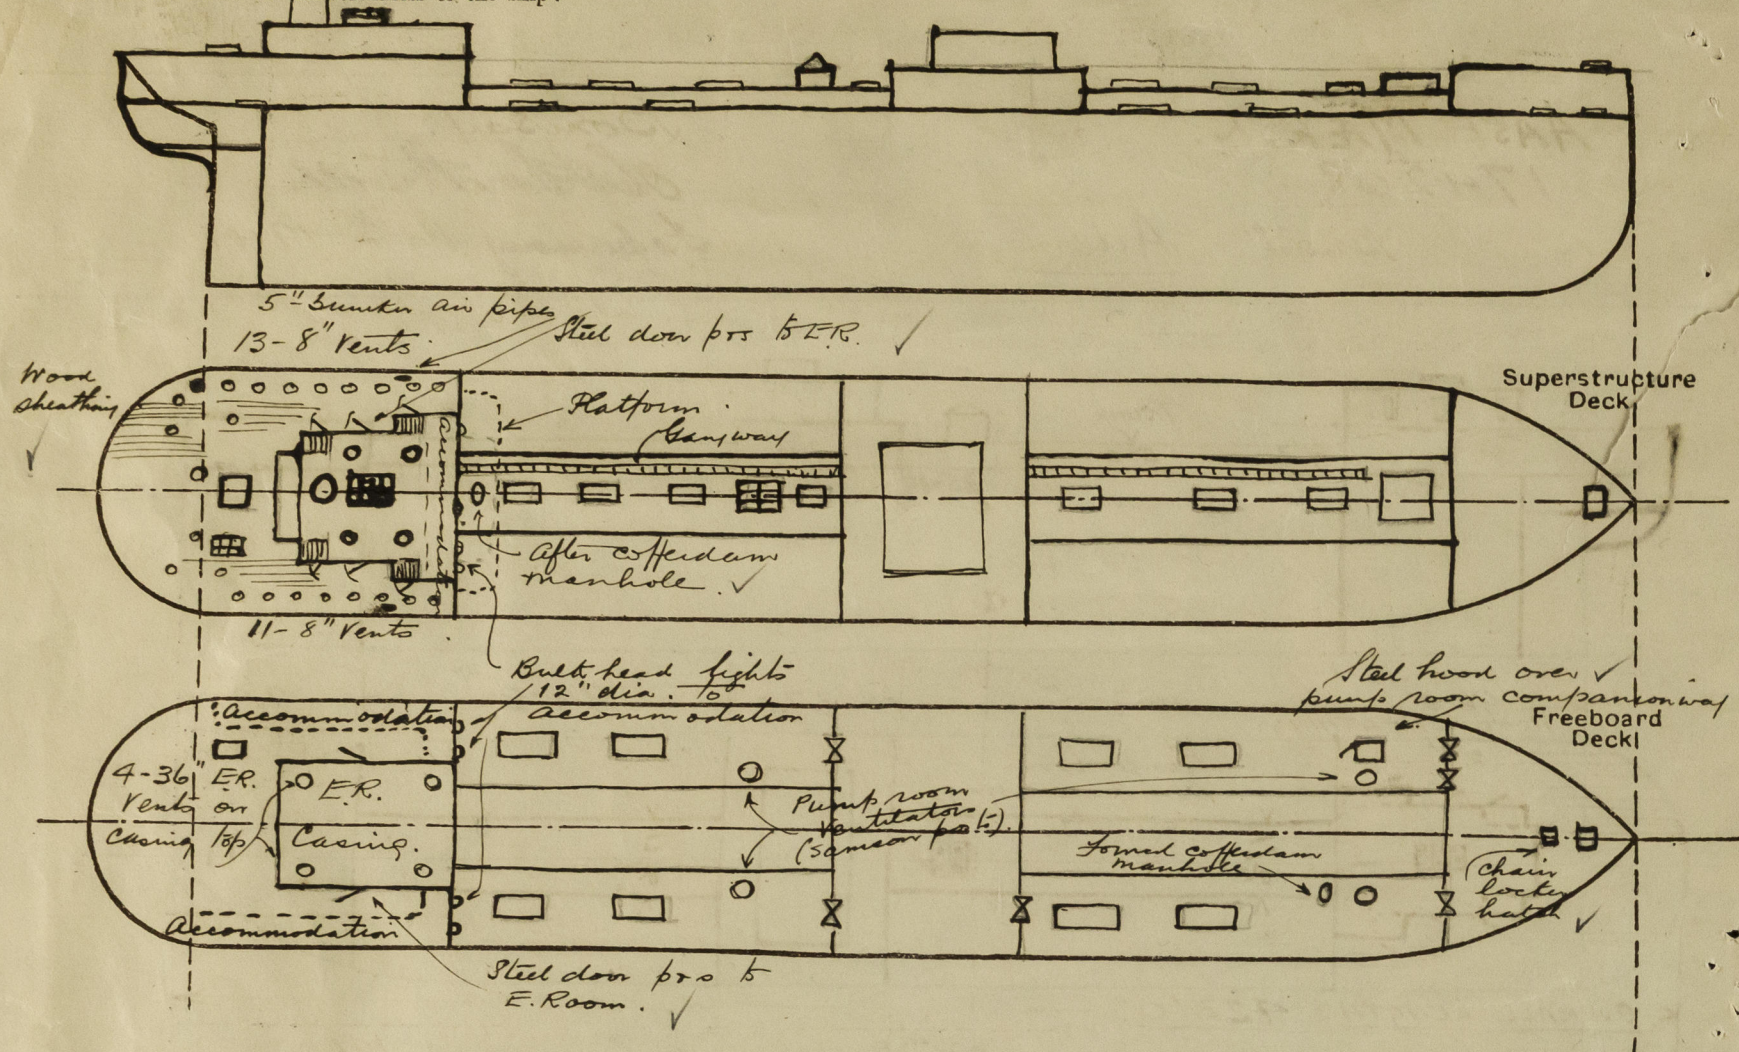 5" Bunker air pipes
13-8" Vents.
Steel door p&s to E.R.
Wood
sheathing
Platform.
Gangway
Superstructure
Deck
accommodation
After cofferdam
manhole.
11-8" Vents.
Bulkhead lights
12" dia. to
accommodation
Steel hood over
pump room companionway
Freeboard
Deck
accommodation
4-36" E.R.
Vents on
casing top
E.R.
Casing.
Pump room
Ventilators
(samson posts).
Forward cofferdam
manhole
chain
locker
hatch
Accommodation
Steel door p&s to
E. Room.